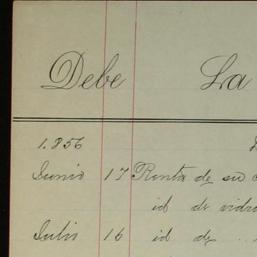 Debe La
1.856
Junio 17 Renta de su
id de vidr
Julio 16 id de